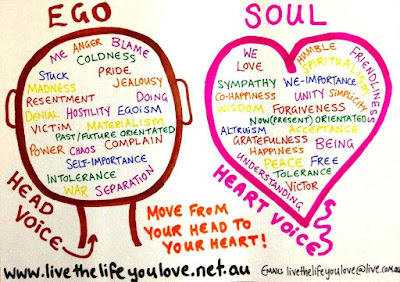 EGO
ME ANGER BLAME
COLDNESS
STUCK PRIDE
MADNESS JEALOUSY
RESENTMENT DOING
DENIAL HOSTILITY EGOISM
VICTIM MATERIALISM
PAST/FUTURE ORIENTATED
POWER CHAOS COMPLAIN
SELF-IMPORTANCE
INTOLERANCE
WAR SEPARATION
HEAD
VOICE
SOUL
WE HUMBLE FRIENDLINESS
LOVE SPIRITUALISM
SYMPATHY WE-IMPORTANCE
CO-HAPPINESS UNITY SIMPLICITY
WISDOM FORGIVENESS
NOW(PRESENT) ORIENTATED
ALTRUISM ACCEPTANCE
GRATEFULNESS BEING
HAPPINESS
PEACE FREE
UNDERSTANDING TOLERANCE
VICTOR
HEART VOICE
MOVE FROM
YOUR HEAD TO
YOUR HEART!
www.livethelifeyoulove.net.au
EMAIL: livethelifeyoulove@live.com.au